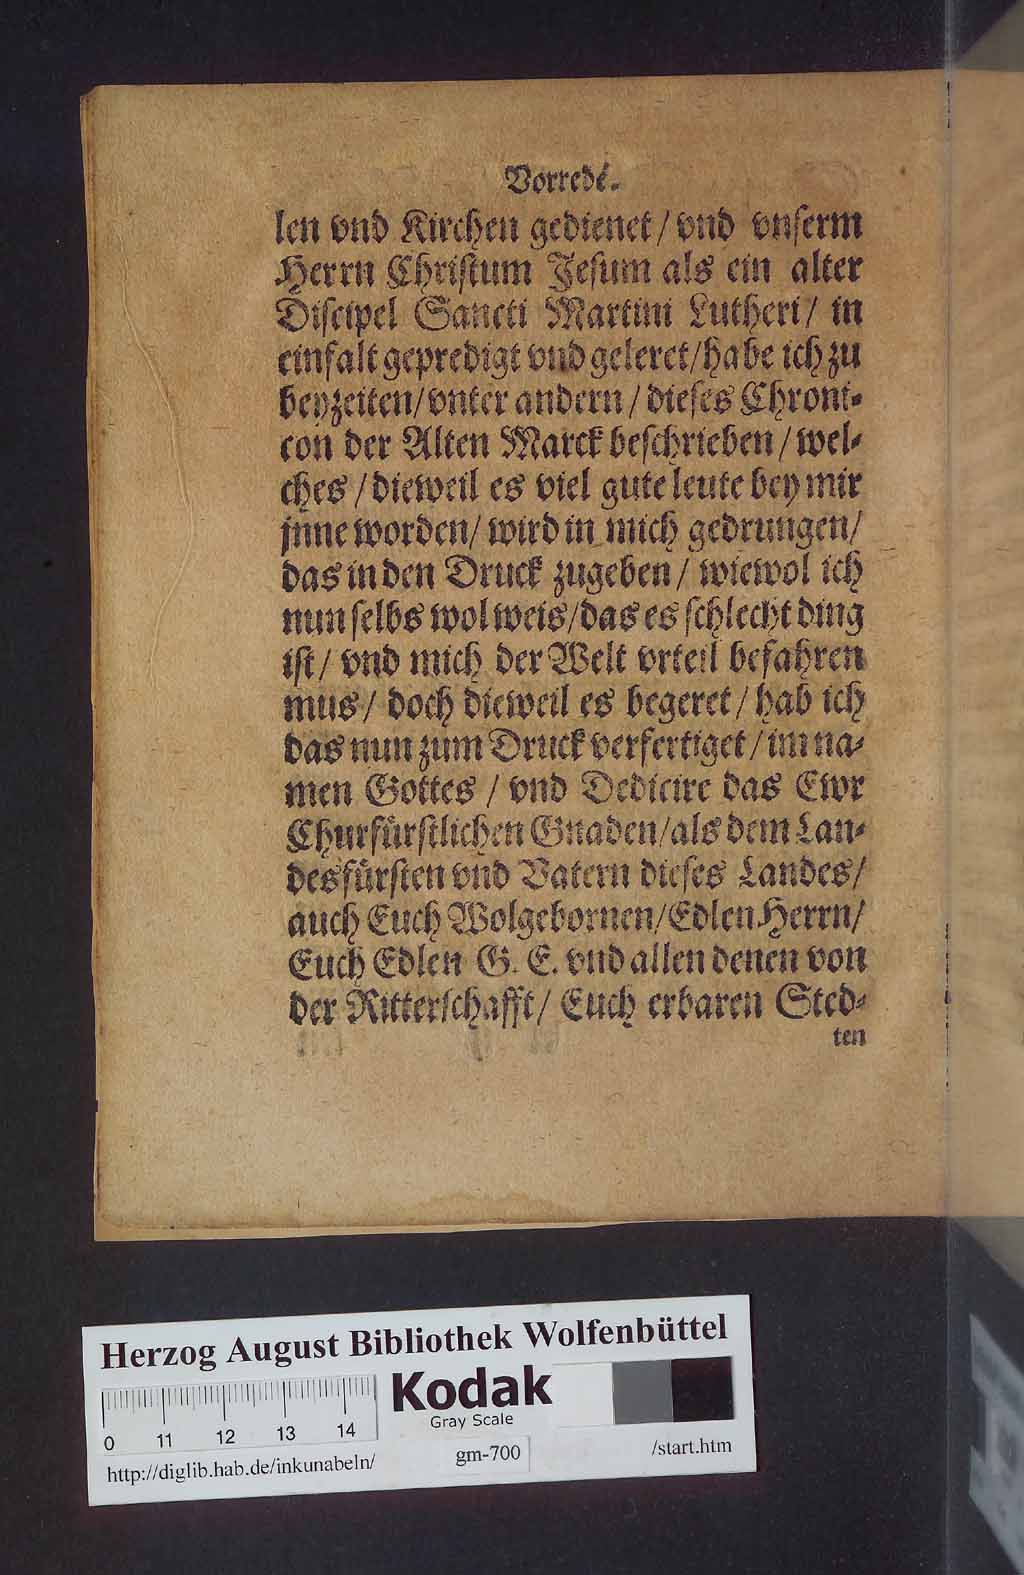 Vorrede.
len vnd Kirchen gedienet / vnd vnserm
Herrn Christum Jesum als ein alter
Discipel Sancti Martini Lutheri / in
einfalt gepredigt vnd geleret / habe ich zu
beyzeiten / vnter andern / dieses Chroni-
con der Alten Marck beschrieben / wel-
ches / dieweil es viel gute leute bey mir
jnne worden / wird in mich gedrungen /
das in den Druck zugeben / wiewol ich
nun selbs wol weis / das es schlecht ding
ist / vnd mich der Welt vrteil befahren
mus / doch dieweil es begeret / hab ich
das nun zum Druck verfertiget / im na-
men Gottes / vnd Dedicire das Ewr
Churfürstlichen Gnaden / als dem Lan-
desfürsten vnd Vatern dieses Landes /
auch Euch Wolgebornen / Edlen Herrn /
Euch Edlen G. E. vnd allen denen von
der Ritterschafft / Euch erbaren Sted-
ten
Herzog August Bibliothek Wolfenbüttel
Kodak
Gray Scale
0 11 12 13 14
http://diglib.hab.de/inkunabeln/
gm-700
/start.htm